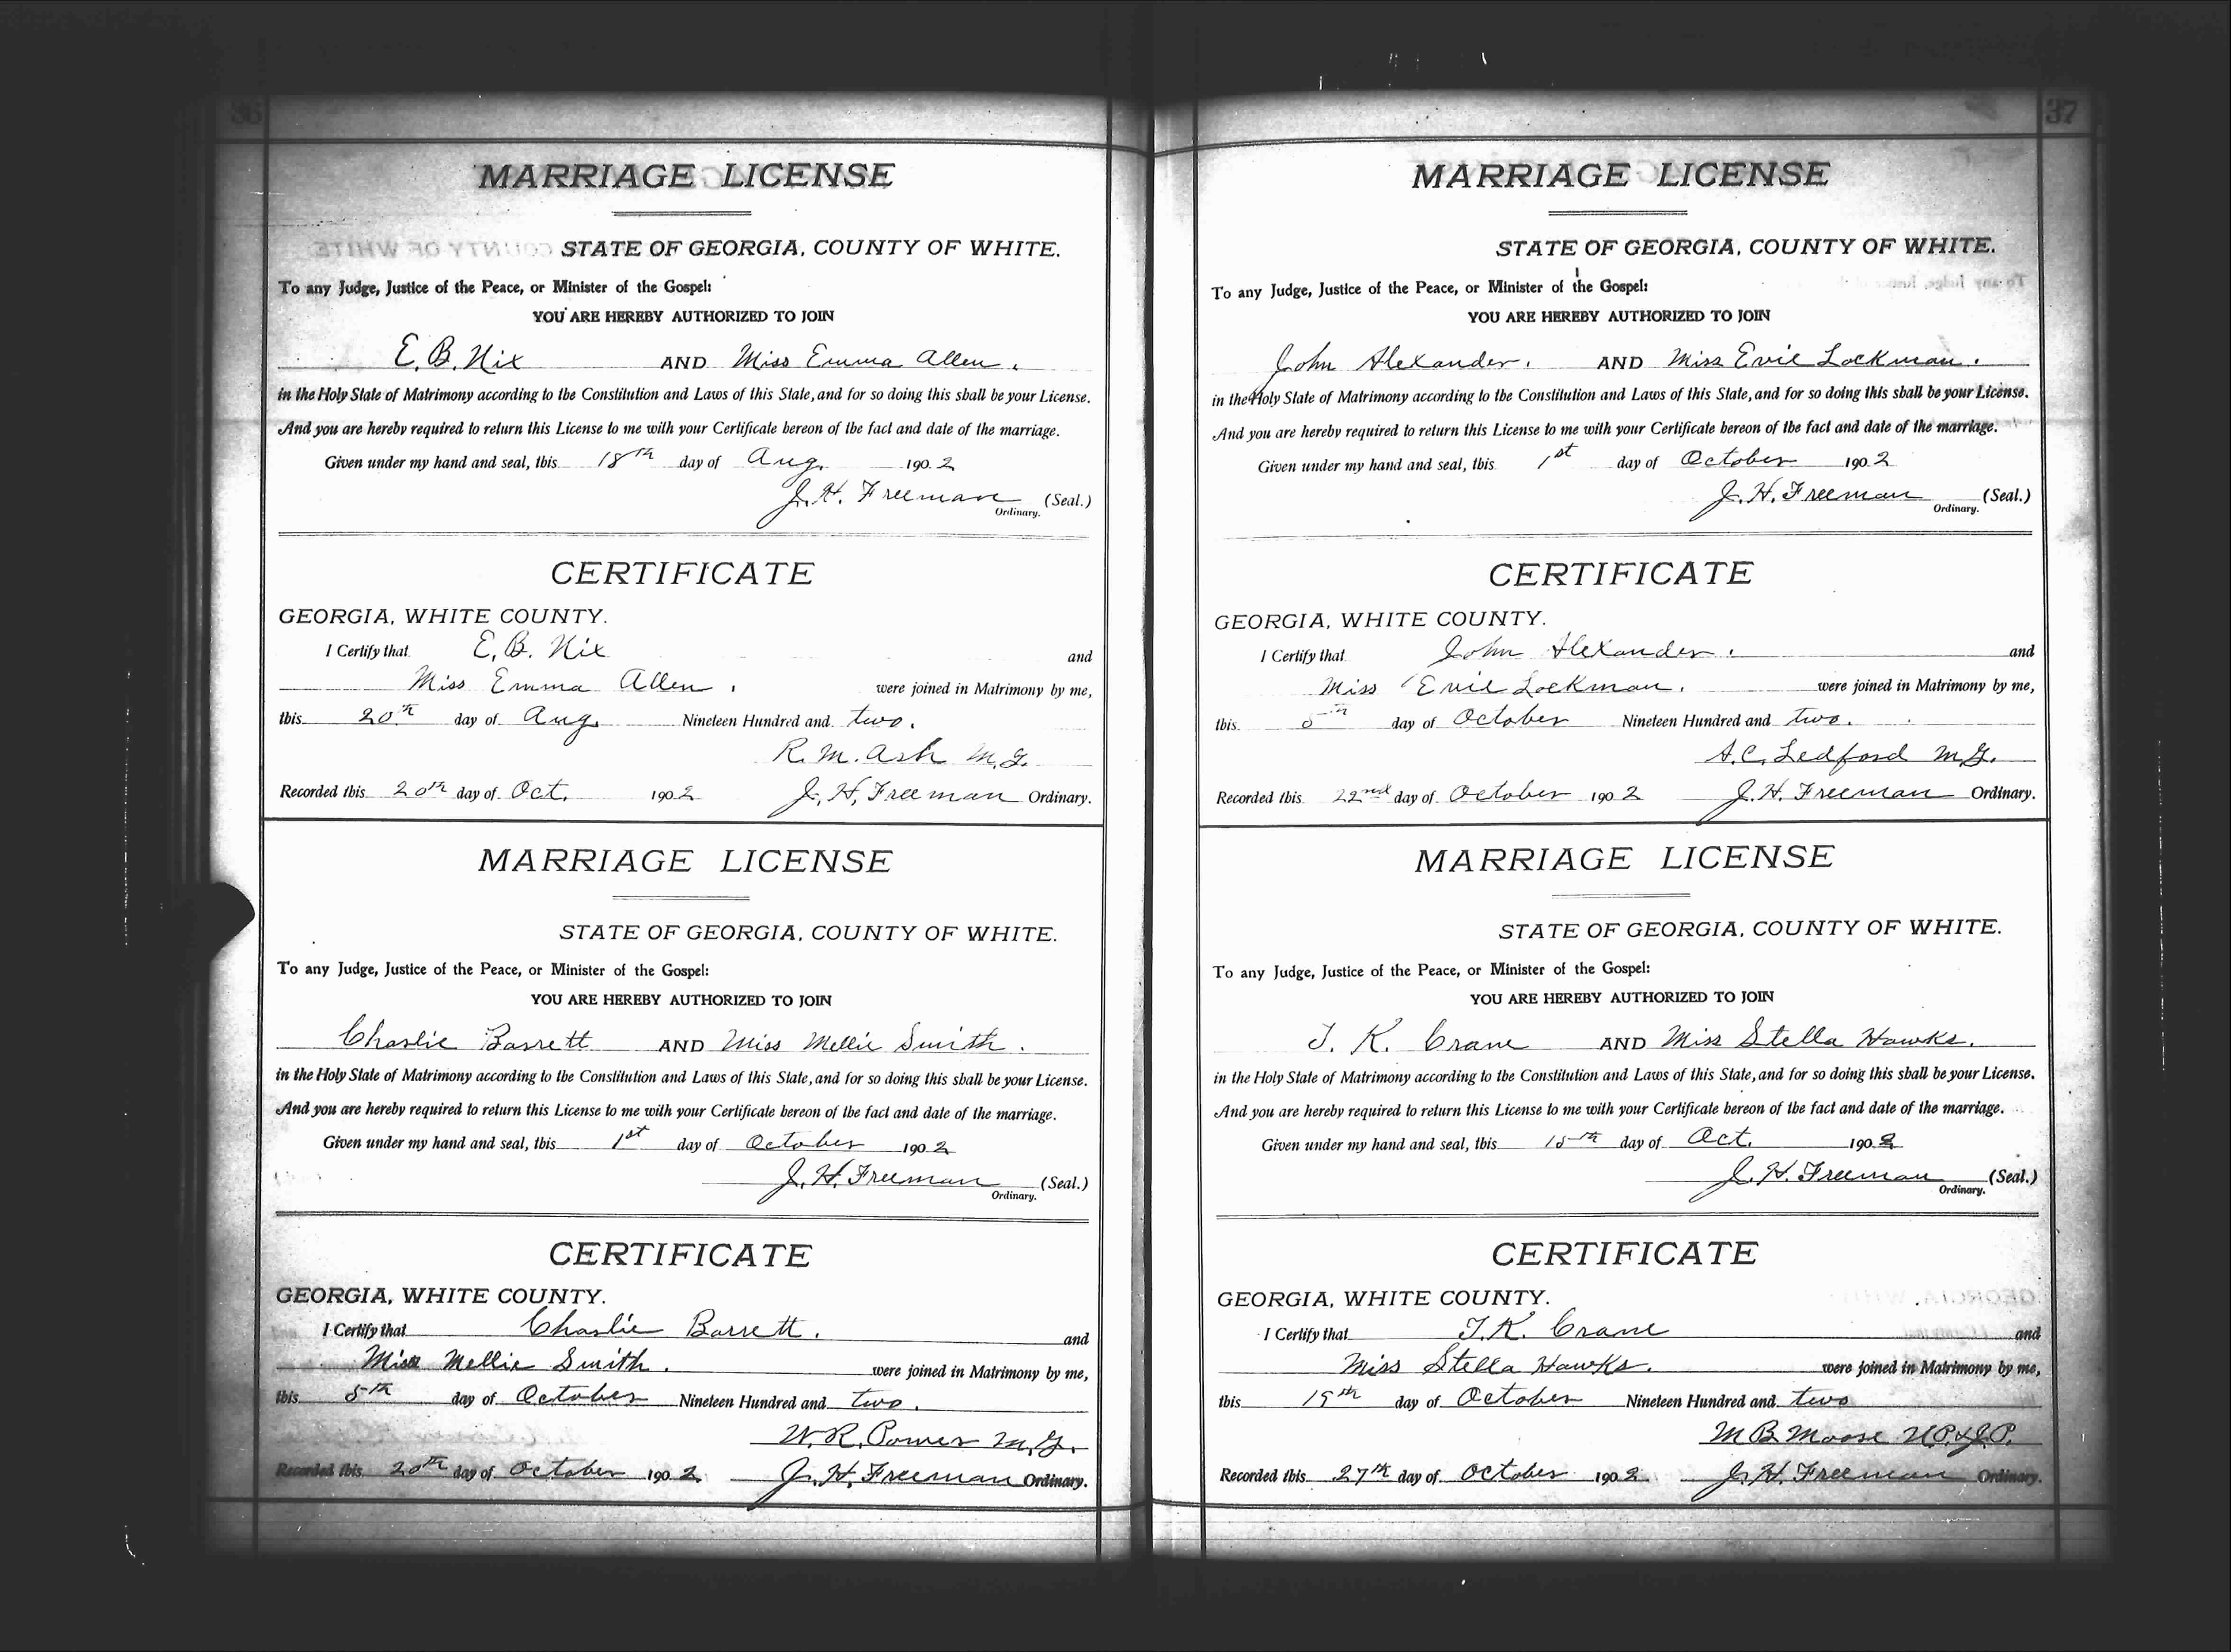 36
MARRIAGE LICENSE
STATE OF GEORGIA, COUNTY OF WHITE.
To any Judge, Justice of the Peace, or Minister of the Gospel:
YOU ARE HEREBY AUTHORIZED TO JOIN
E. B. Nix AND Miss Emma Allen.
in the Holy State of Matrimony according to the Constitution and Laws of this State, and for so doing this shall be your License.
And you are hereby required to return this License to me with your Certificate hereon of the fact and date of the marriage.
Given under my hand and seal, this 18th day of Aug. 1902
J. H. Freeman (Seal.)
Ordinary.
CERTIFICATE
GEORGIA, WHITE COUNTY.
I Certify that E. B. Nix and
Miss Emma Allen. were joined in Matrimony by me,
this 20th day of Aug. Nineteen Hundred and two.
R. M. Ash M. G.
Recorded this 20th day of Oct. 1902 J. H. Freeman Ordinary.
MARRIAGE LICENSE
STATE OF GEORGIA, COUNTY OF WHITE.
To any Judge, Justice of the Peace, or Minister of the Gospel:
YOU ARE HEREBY AUTHORIZED TO JOIN
Charlie Barrett AND Miss Mellie Smith.
in the Holy State of Matrimony according to the Constitution and Laws of this State, and for so doing this shall be your License.
And you are hereby required to return this License to me with your Certificate hereon of the fact and date of the marriage.
Given under my hand and seal, this 1st day of October 1902
J. H. Freeman (Seal.)
Ordinary.
CERTIFICATE
GEORGIA, WHITE COUNTY.
I Certify that Charlie Barrett. and
Miss Mellie Smith. were joined in Matrimony by me,
this 5th day of October Nineteen Hundred and two.
W. R. Power M. G.
Recorded this 20th day of October 1902. J. H. Freeman Ordinary.
37
MARRIAGE LICENSE
STATE OF GEORGIA, COUNTY OF WHITE.
To any Judge, Justice of the Peace, or Minister of the Gospel:
YOU ARE HEREBY AUTHORIZED TO JOIN
John Alexander. AND Miss Evie Lockman.
in the Holy State of Matrimony according to the Constitution and Laws of this State, and for so doing this shall be your License.
And you are hereby required to return this License to me with your Certificate hereon of the fact and date of the marriage.
Given under my hand and seal, this 1st day of October 1902
J. H. Freeman (Seal.)
Ordinary.
CERTIFICATE
GEORGIA, WHITE COUNTY.
I Certify that John Alexander. and
Miss Evie Lockman. were joined in Matrimony by me,
this 5th day of October Nineteen Hundred and two.
A. C. Ledford M. G.
Recorded this 22nd day of October 1902 J. H. Freeman Ordinary.
MARRIAGE LICENSE
STATE OF GEORGIA, COUNTY OF WHITE.
To any Judge, Justice of the Peace, or Minister of the Gospel:
YOU ARE HEREBY AUTHORIZED TO JOIN
T. K. Crane AND Miss Stella Hawks.
in the Holy State of Matrimony according to the Constitution and Laws of this State, and for so doing this shall be your License.
And you are hereby required to return this License to me with your Certificate hereon of the fact and date of the marriage.
Given under my hand and seal, this 15th day of Oct. 1902
J. H. Freeman (Seal.)
Ordinary.
CERTIFICATE
GEORGIA, WHITE COUNTY.
I Certify that T. K. Crane and
Miss Stella Hawks. were joined in Matrimony by me,
this 19th day of October Nineteen Hundred and two
M B Moose N. P. & J. P.
Recorded this 27th day of October 1902 J. H. Freeman Ordinary.